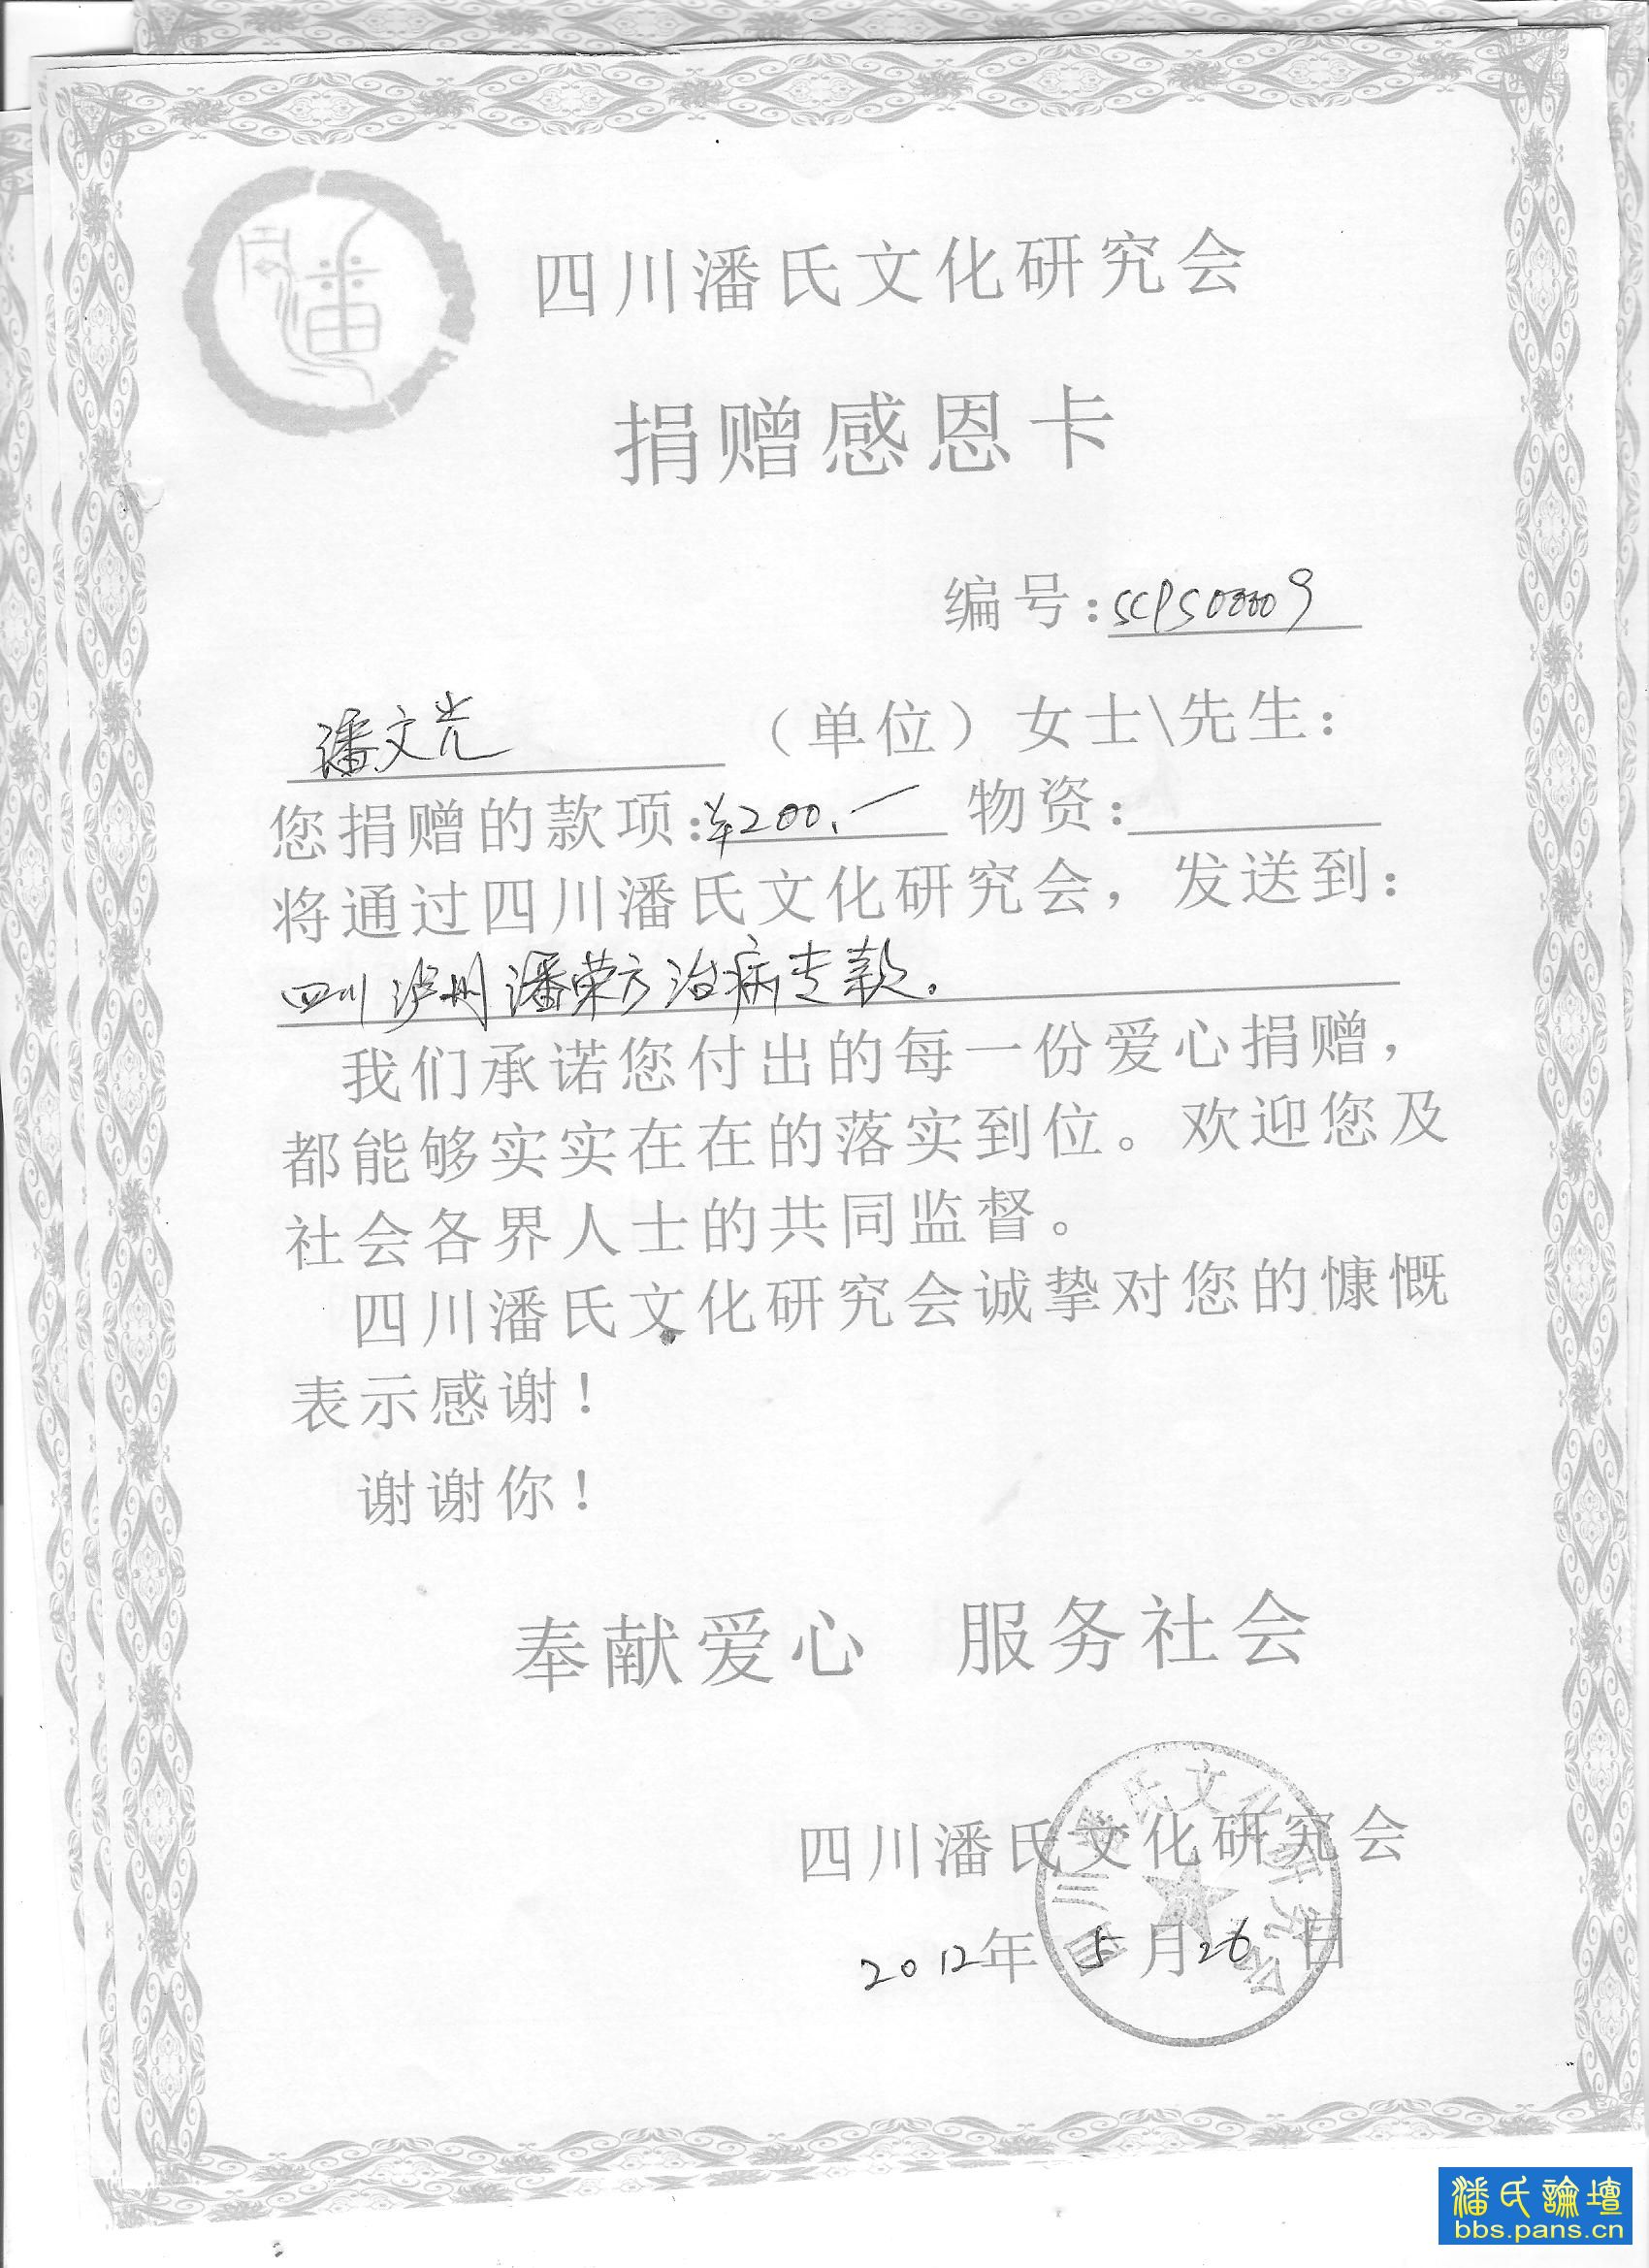 四川潘氏文化研究会
捐赠感恩卡
编号:SCPS00009
潘文光（单位）女士\先生：
您捐赠的款项:¥200.— 物资:
将通过四川潘氏文化研究会，发送到：
四川泸州潘荣方治病专款。
我们承诺您付出的每一份爱心捐赠，
都能够实实在在的落实到位。欢迎您及
社会各界人士的共同监督。
四川潘氏文化研究会诚挚对您的慷慨
表示感谢！
谢谢你！
奉献爱心 服务社会
四川潘氏文化研究会
2012年5月26日
四川潘氏文化研究会
潘氏論壇
bbs.pans.cn